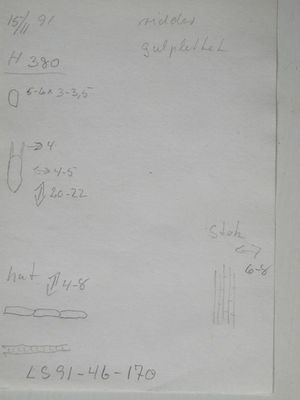 15/11 91
ridder
gulplettet
H 380
5-6 x 3-3,5
4
4-5
20-22
stok
6-8
hat 4-8
LS91-46-170